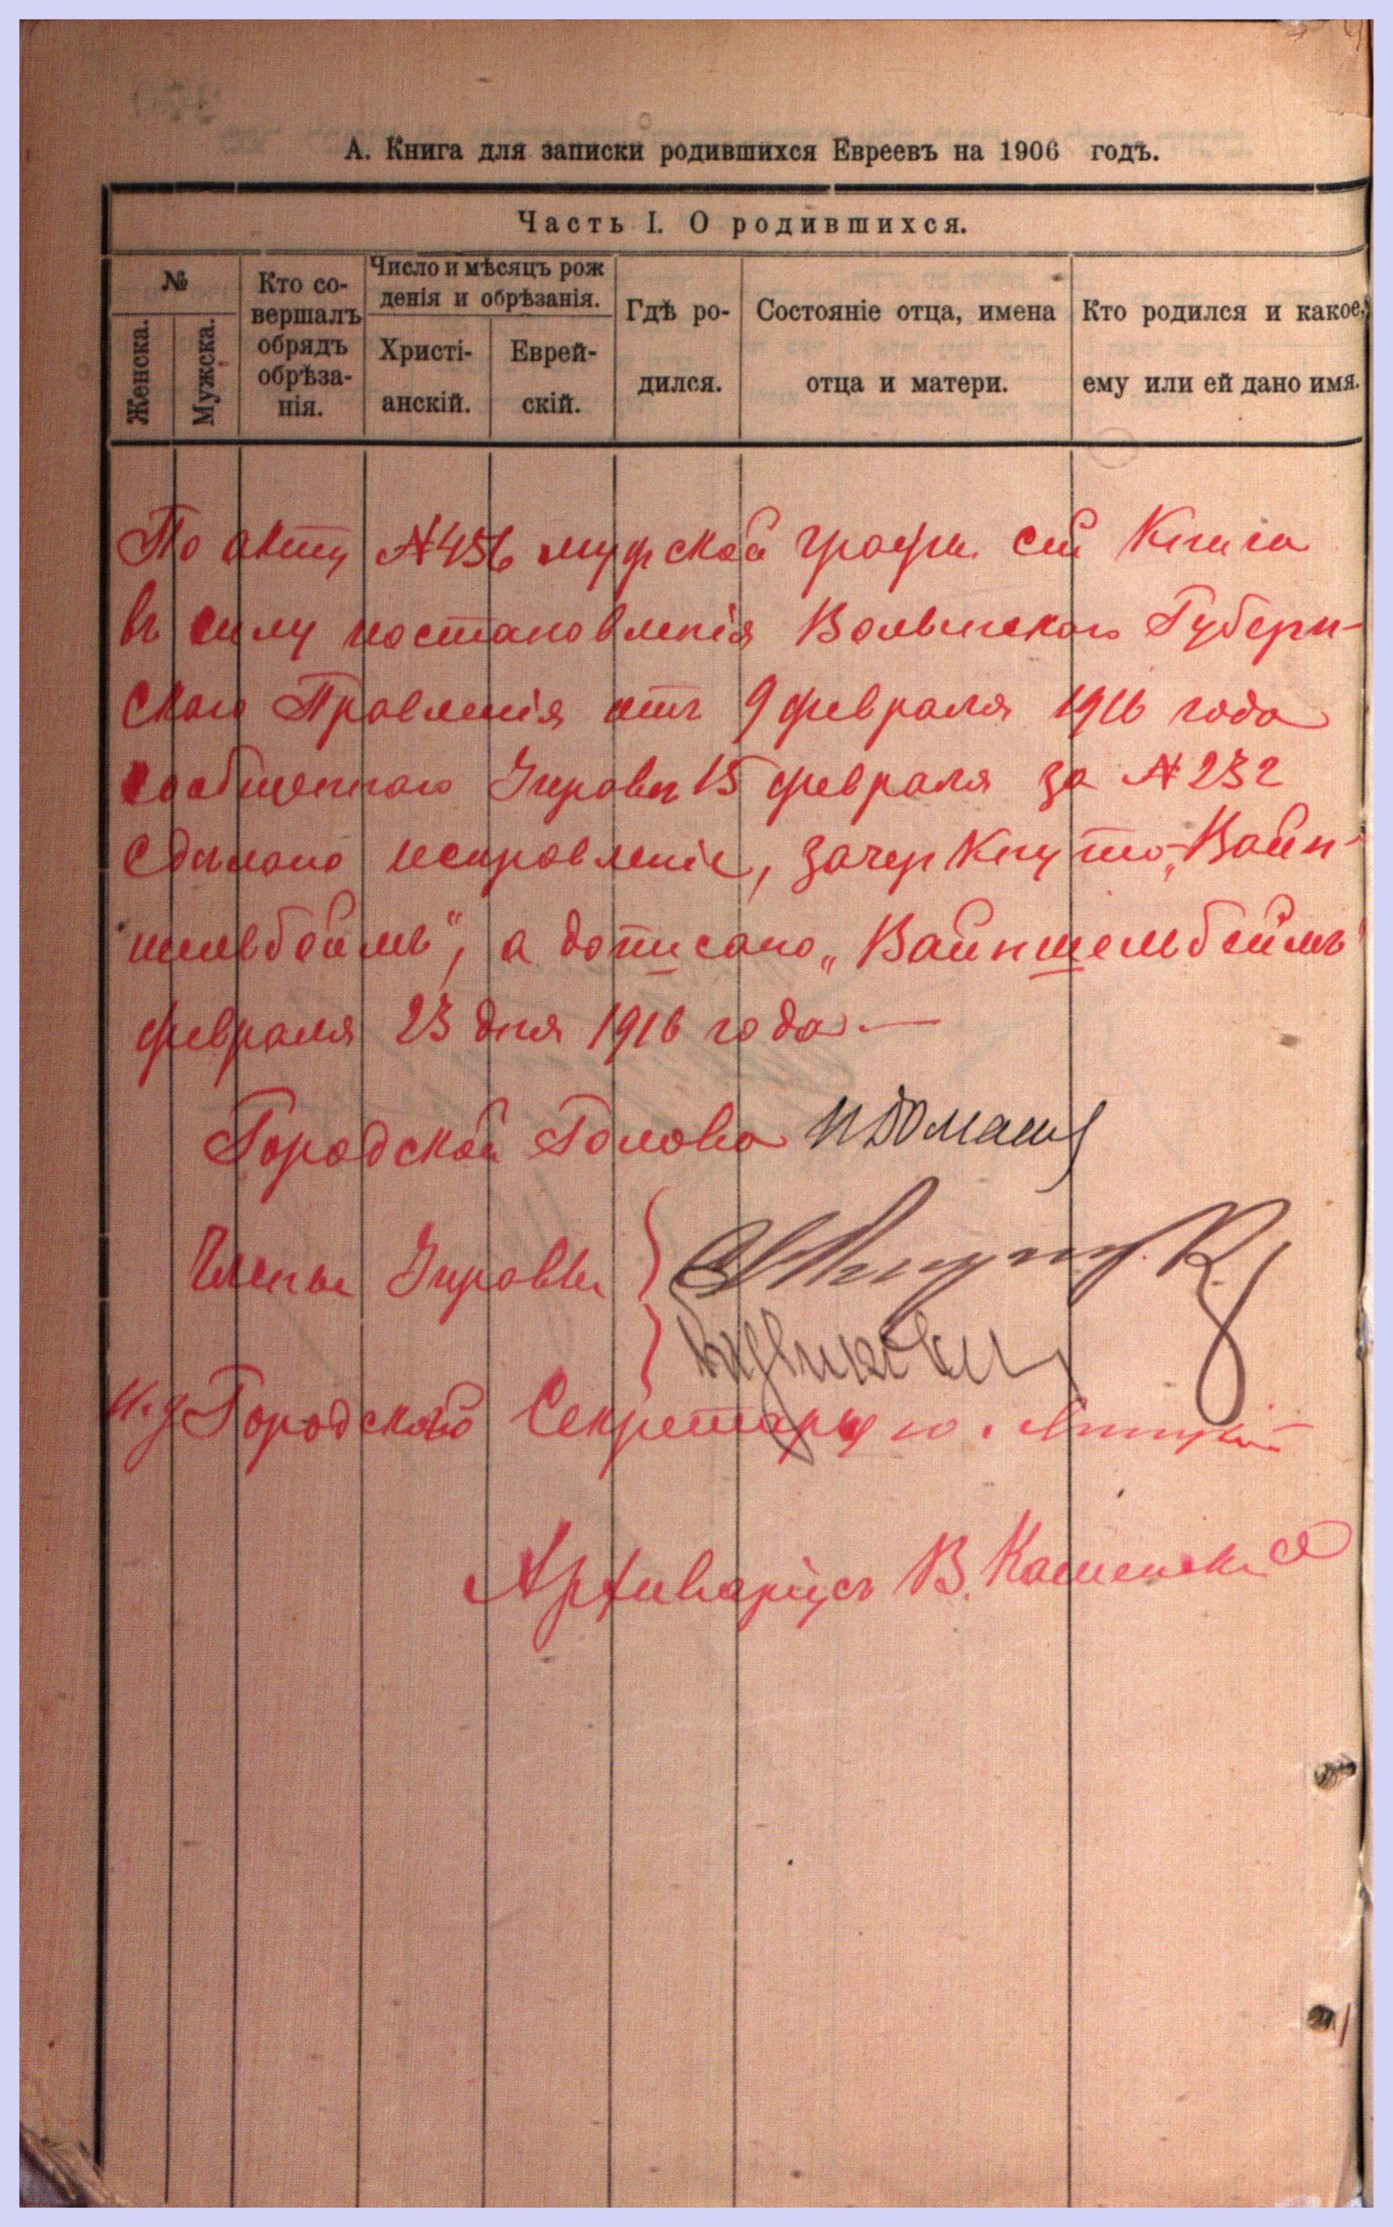 А. Книга для записки родившихся Евреевъ на 1906 годъ.
Часть I. О родившихся.
№
Женска.
Мужска.
Кто со-
вершалъ
обрядъ
обрѣза-
нія.
Число и мѣсяцъ рож
денія и обрѣзанія.
Христі-
анскій.
Еврей-
скій.
Гдѣ ро-
дился.
Состояніе отца, имена
отца и матери.
Кто родился и какое
ему или ей дано имя.
По акту №456 мужской графы сей Книга
въ силу постановленія Волынскаго Губерн-
скаго Правленія отъ 9 февраля 1916 года
сообщеннаго Управѣ 15 февраля за №232
сдѣлано исправленіе, зачеркнуто „Вайн-
шельбоймъ", а дописано „Вайншельбеймъ"
февраля 23 дня 1916 года.—
Городской Голова
Члены Управы
И.д Городского Секретаря
Архиваріусъ В. Каменскій